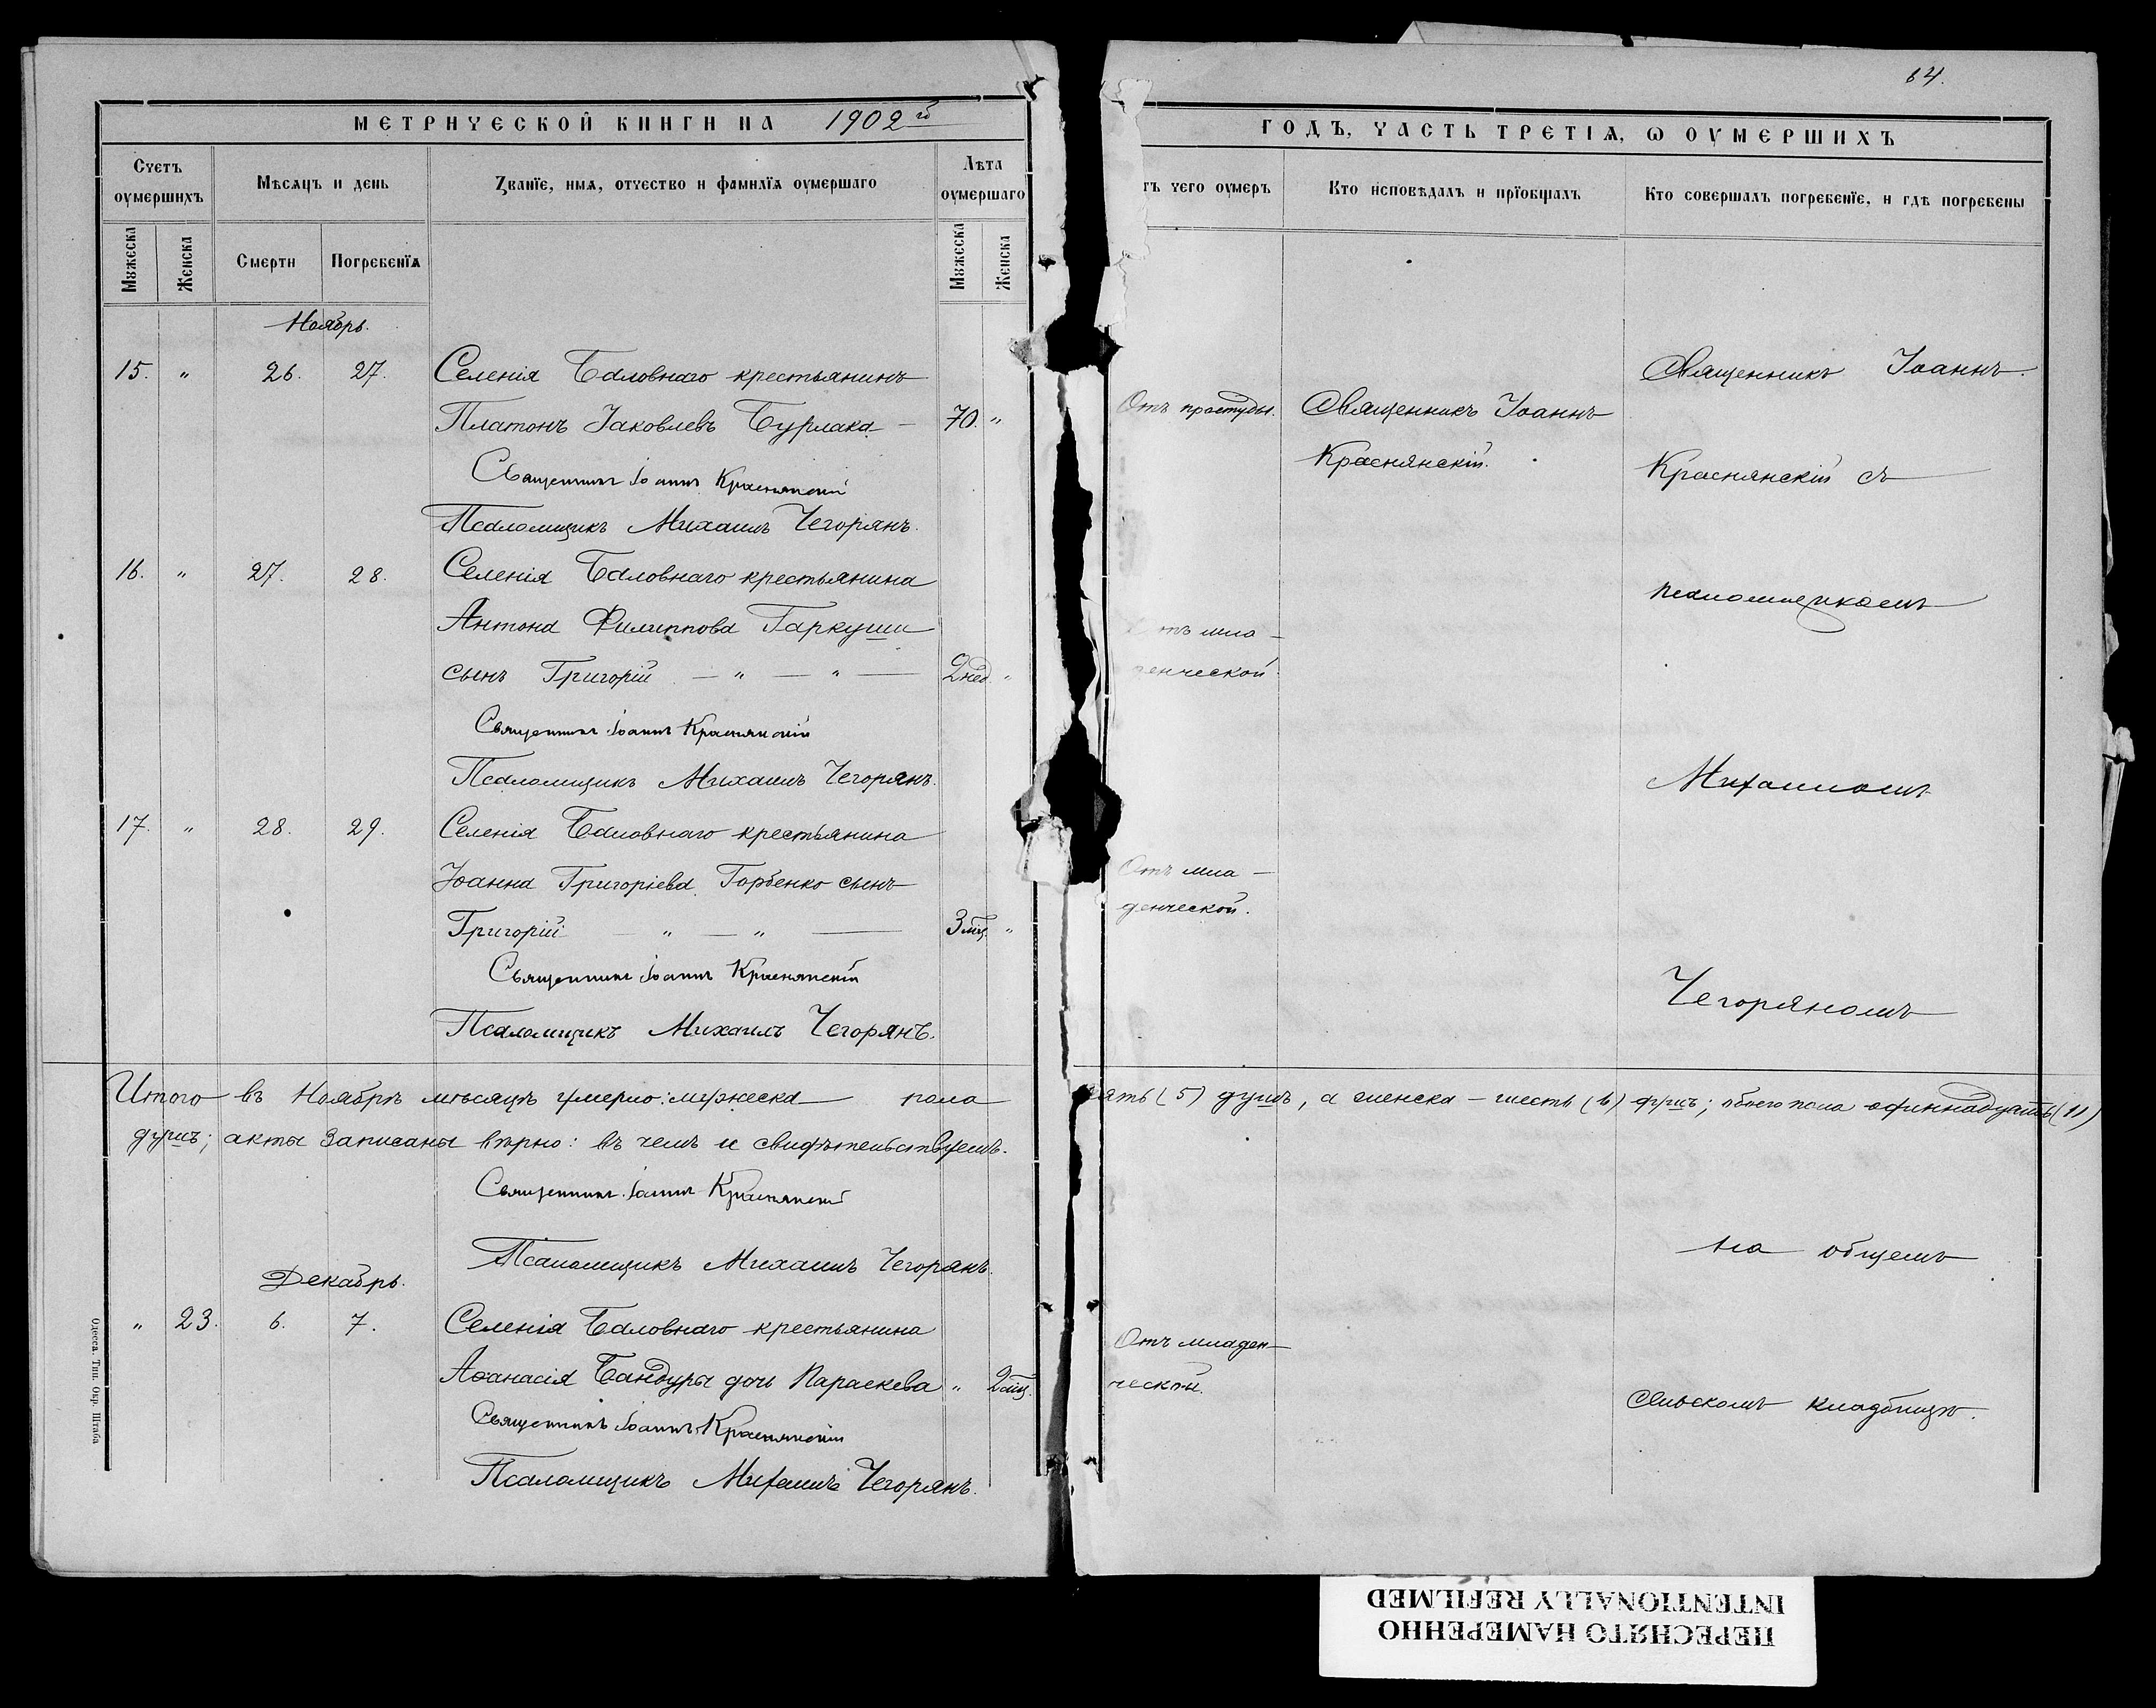 64.
МЕТРИЧЕСКОЙ КНИГИ НА 1902 го
ГОДЪ, ЧАСТЬ ТРЕТІЯ, Ѡ ОУМЕРШИХЪ
Счетъ оумершихъ
Мѣсяцъ и день
Званїе, имя, отчество и фамилїя оумершаго
Лѣта оумершаго
чего оумеръ
Кто исповѣдалъ и прїобщалъ
Кто совершалъ погребенїе, и гдѣ погребены
Мужеска
Женска
Смерти
Погребенїя
Мужеска
Женска
Ноябрь.
15. " 26. 27. Селенія Баловнаго крестьянинъ
Платонъ Іаковлевъ Бурлака — 70. "
Священникъ Іоаннъ Краснянскій
Псаломщикъ Михаилъ Чегорянъ.
16. " 27. 28. Селенія Баловнаго крестьянина
Антона Филиппова Гаркуши
сынъ Григорій — " — " — 2 нед. "
Священникъ Іоаннъ Краснянскій
Псаломщикъ Михаилъ Чегорянъ.
17. " 28. 29. Селенія Баловнаго крестьянина
Іоанна Григоріева Горбенко сынъ
Григорій — " — " — 3 мѣс. "
Священникъ Іоаннъ Краснянскій
Псаломщикъ Михаилъ Чегорянъ.
Отъ простуды.
Священникъ Іоаннъ
Краснянскій.
отъ мла-
денческой.
Отъ мла-
денческой.
Священникъ Іоаннъ
Краснянскій съ
псаломщикомъ
Михаиломъ
Чегоряномъ
Итого въ Ноябрѣ мѣсяцѣ умерло: мужеска пола пять (5) душъ, а женска – шесть (6) душъ; обоего пола одиннадцать (11)
душъ; акты записаны вѣрно: въ чемъ и свидѣтельствуемъ.
Священникъ Іоаннъ Краснянскій
Псаломщикъ Михаилъ Чегорянъ.
Декабрь.
" 23. 6. 7. Селенія Баловнаго крестьянина
Аѳанасія Бандуры дочь Параскева " 2 мѣс.
Священникъ Іоаннъ Краснянскій
Псаломщикъ Михаилъ Чегорянъ.
Отъ младен-
ческой.
на общемъ
сельскомъ кладбищѣ.
Одесса. Тип. Окр. Штаба
ПЕРЕСНЯТО НАМЕРЕННО
INTENTIONALLY REFILMED